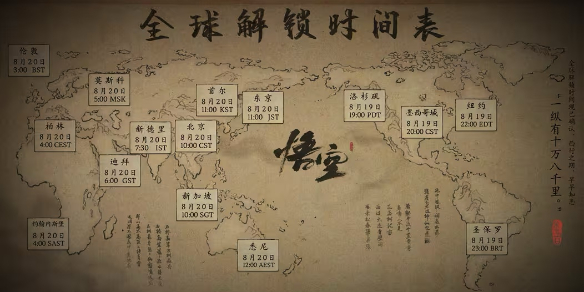 全球解锁时间表
伦敦
8月20日
3:00 BST
莫斯科
8月20日
5:00 MSK
首尔
8月20日
11:00 KST
东京
8月20日
11:00 JST
洛杉矶
8月19日
19:00 PDT
墨西哥城
8月19日
20:00 CST
纽约
8月19日
22:00 EDT
柏林
8月20日
4:00 CEST
新德里
8月20日
7:30 IST
北京
8月20日
10:00 CST
迪拜
8月20日
6:00 GST
新加坡
8月20日
10:00 SGT
约翰内斯堡
8月20日
4:00 SAST
悉尼
8月20日
12:00 AEST
圣保罗
8月19日
23:00 BRT
悟空
一纵有十万八千里